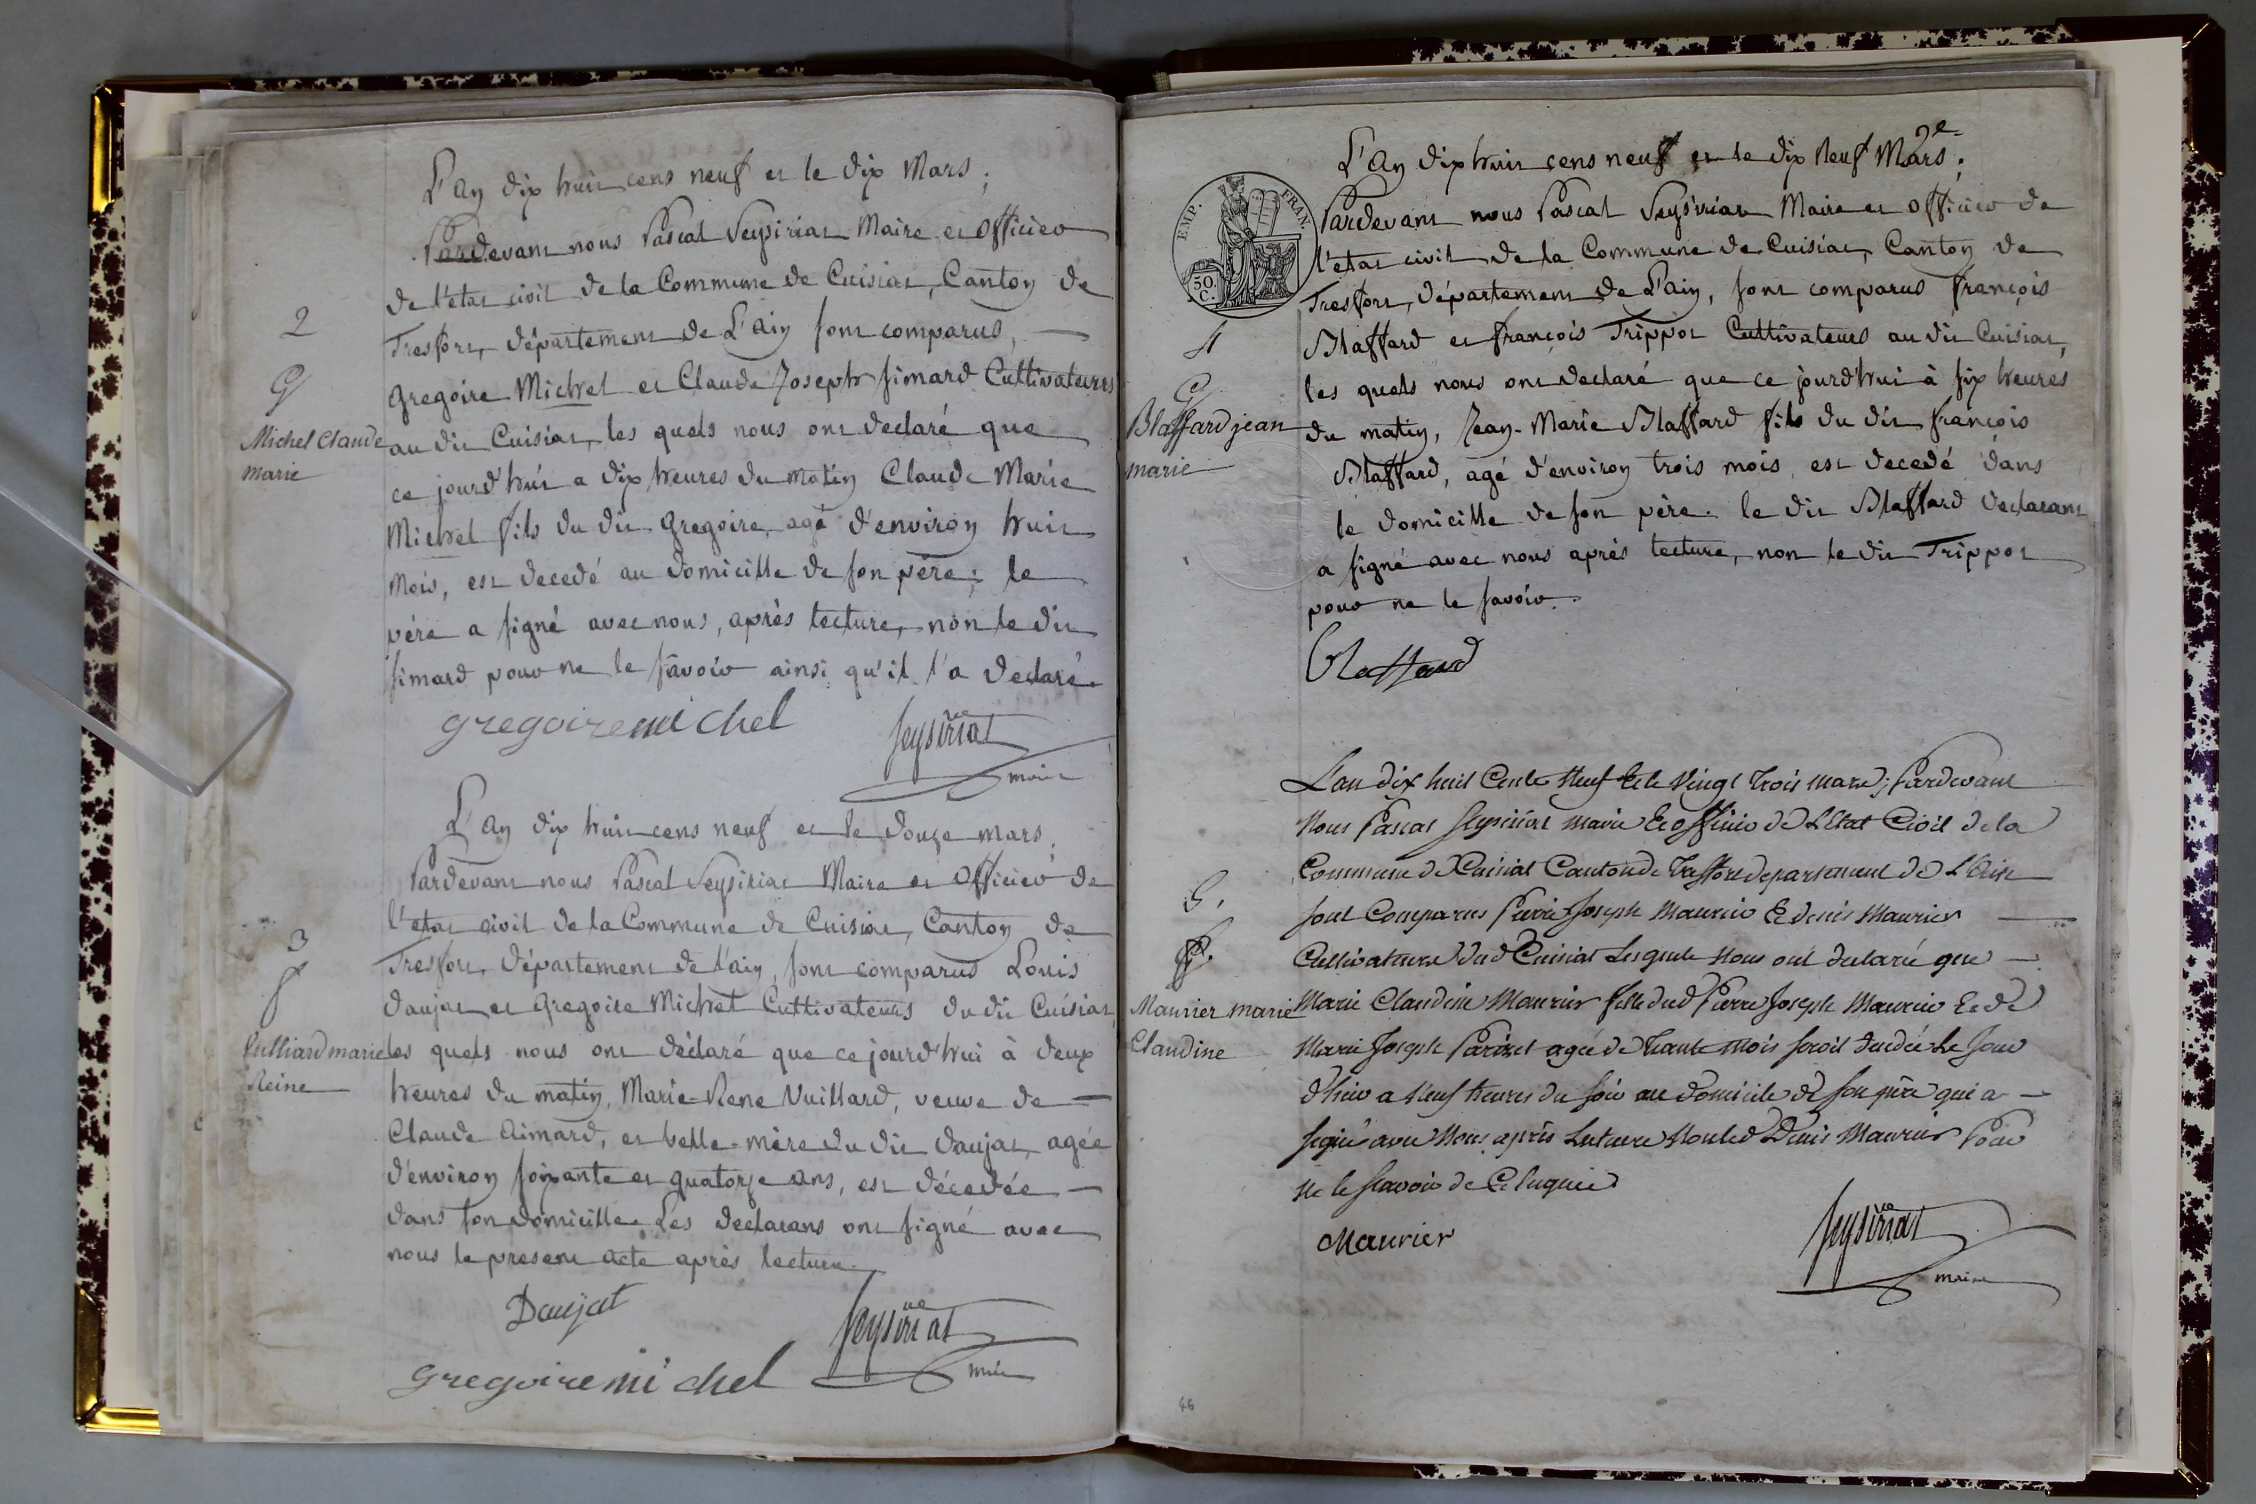 L'an dix huit cens neuf et le dix Mars ;
Pardevant nous Pascal Seysiriat Maire et Officier
de l'etat civil de la Commune de Cuisiat, Canton de
Tresfort, département de L'ain sont comparus,
2
G
Michel Claude
marie
Gregoire Michel et Claude Joseph Simard Cultivateurs
au dit Cuisiat, les quels nous ont declaré que
ce jourd'hui a dix heures du matin Claude Marie
Michel fils du dit Gregoire, agé d'environ huit
mois, est decedé au domicille de son père ; le
père a signé avec nous, après lecture, non le dit
Simard pour ne le savoir ainsi qu'il l'a declaré
gregoire michel
Seysiriat
maire
L'an dix huit cens neuf et le douze mars,
Pardevant nous Pascal Seysiriat Maire et Officier de
l'etat civil de la Commune de Cuisiat, Canton de
Tresfort, département de l'ain, sont comparus Louis
3
f
Vulliard marie
Reine
daujat et Gregoire Michel Cultivateurs du dit Cuisiat
les quels nous ont déclaré que ce jourd'hui à deux
heures du matin, Marie-Rene Vuillard, veuve de
Claude Aimard, et belle-mère du dit Daujat, agée
d'environ soixante et quatorze ans, est décedée
dans son domicille. Les declarans ont signé avec
nous le present acte après lecture.
Daujat
Seysiriat
gregoire michel
maire
L'an dix huit cens neuf et le dix neuf Mars ;
EMP. FRAN.
50.
C.
Pardevant nous Pascal Seysiriat Maire et officier de
l'etat civil de la Commune de Cuisiat, Canton de
Tresfort, département de L'ain, sont comparus françois
4
G
Blaffard jean
marie
Blaffard et françois Trippot Cultivateurs au dit Cuisiat,
les quels nous ont declaré que ce jourd'hui à six heures
du matin, Jean-Marie Blaffard fils du dit françois
Blaffard, agé d'environ trois mois, est decedé dans
le domicille de son père. le dit Blaffard declarant
a signé avec nous après lecture, non le dit Trippot
pour ne le savoir.
Blaffard
L'an dix huit Cents Neuf Et le Vingt trois mars ; Pardevant
Nous Pascal Seysiriat maire Et officier de L'Etat Civil de la
Commune de Cuisiat Canton de Treffort departement de L'Ain
5.
f.
Maurier marie
Claudine
sont Comparus Pierre Joseph Maurier Et denis Maurier
Cultivateurs dud Cuisiat Lesquels Nous ont declaré que
Marie Claudine Maurier fille dud Pierre Joseph Maurier Et de
Marie Joseph Parizet agée de trente mois seroit decedée Le Jour
d'hier a Neuf heures du soir au domicile de son père qui a
signé avec Nous après Lecture Non led Denis Maurier Pour
ne le scavoir de Ce Enquis
Maurier
Seysiriat
maire
46